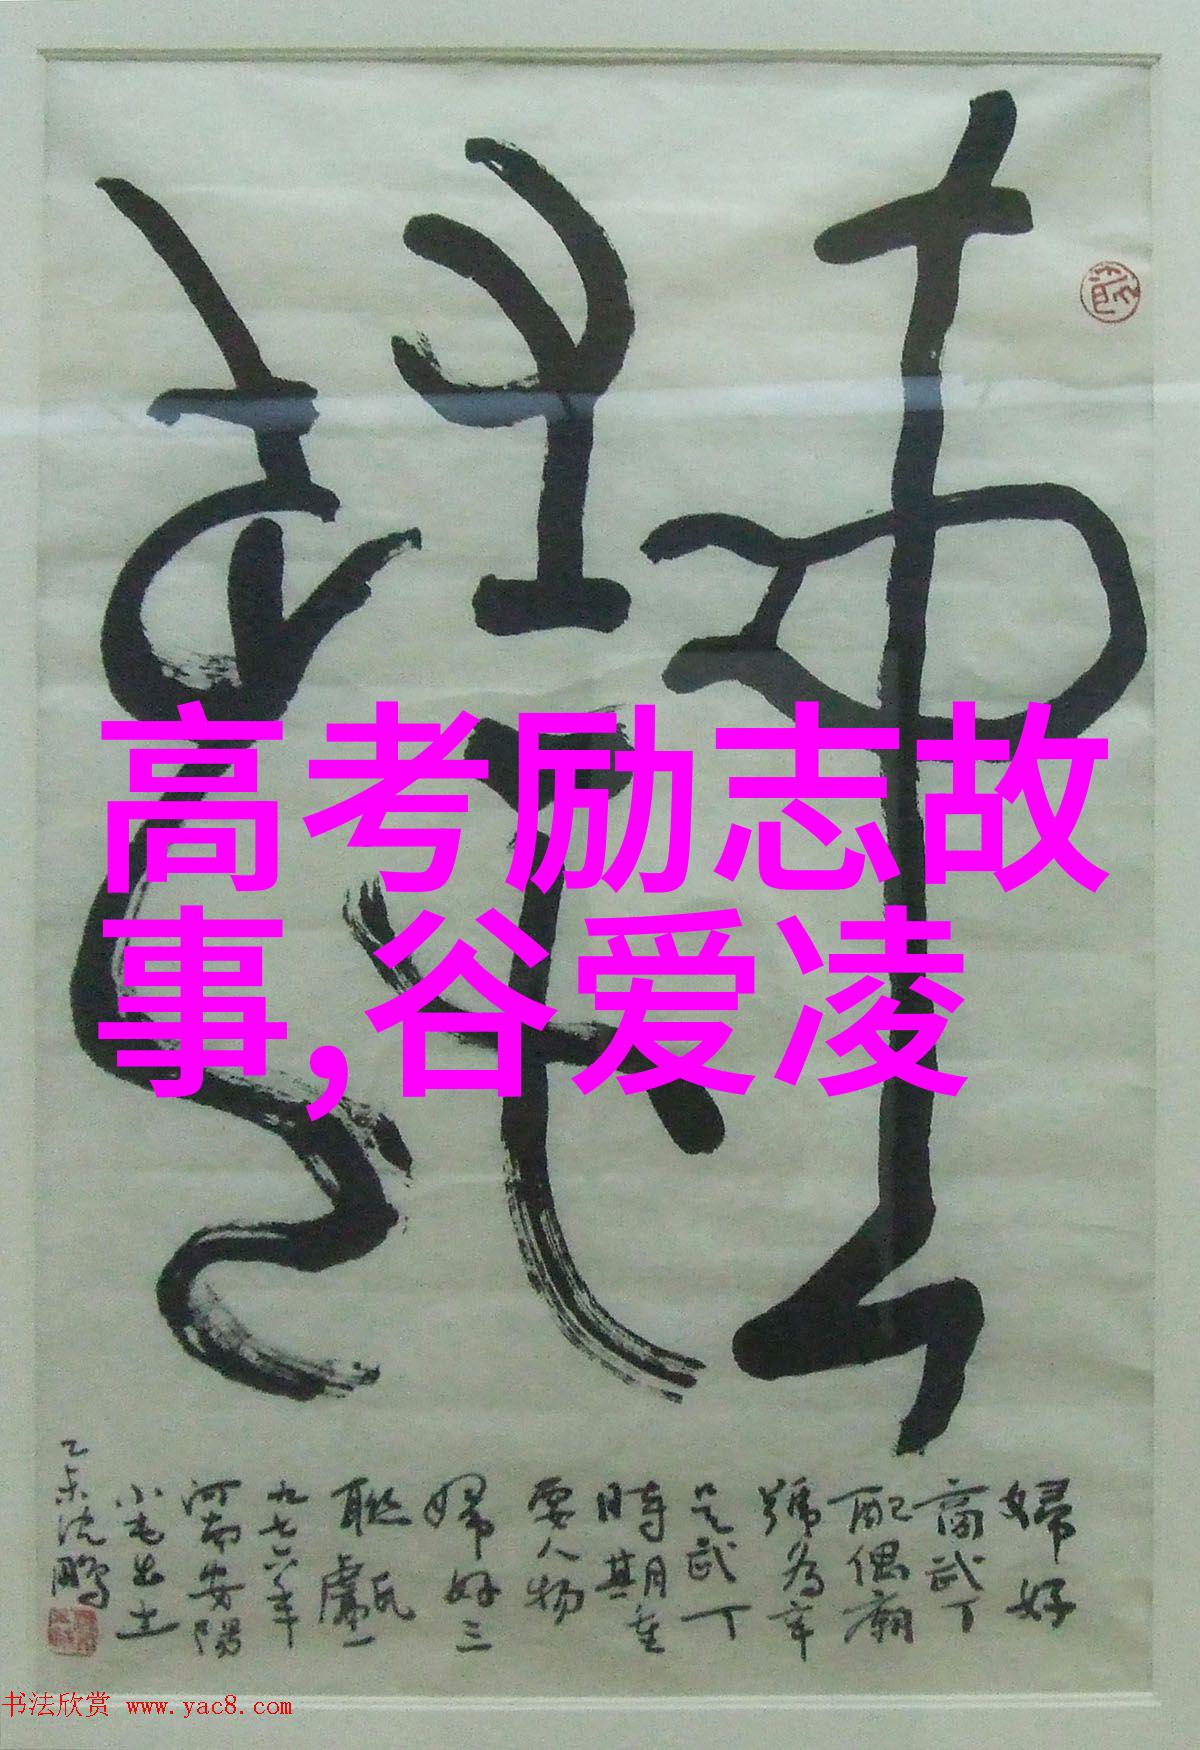 高考励志故
事,谷爱凌
婦好
商武丁
配偶廟
號为辛
是武丁
時期重
要人物
婦好三
聯甗一
九七六年
河南安陽
小屯出土
乙未沈鹏
书法欣赏 www.yac8.com